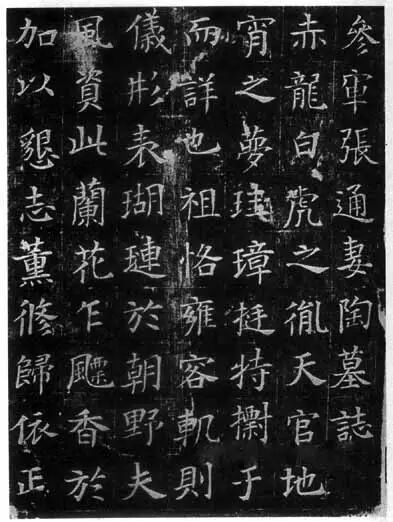 參軍張通妻陶墓誌
赤龍白虎之胤天官地
宵之夢珪璋挺特樹于
而詳也祖恪雍容軌則
儀形表瑚璉於朝野夫
風資此蘭花乍飄香於
加以懇志薰修歸依正